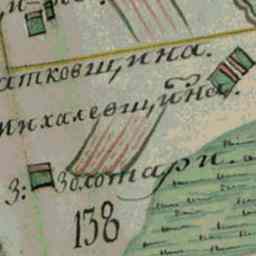 аткавщина.
михалевщина.
З: Золотари.
138